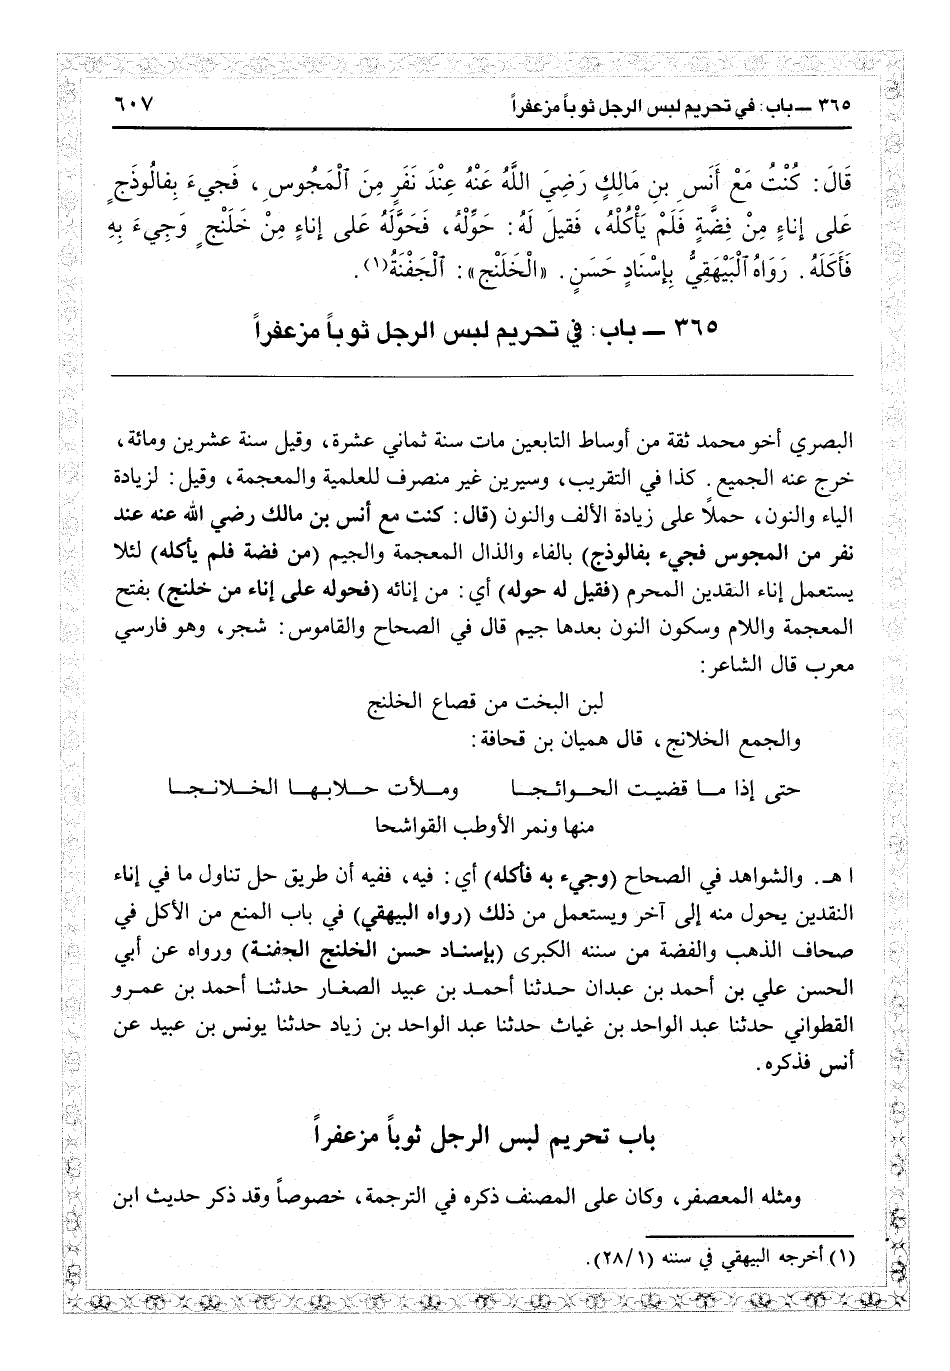 ٣٦٥ ــ باب: في تحريم لبس الرجل ثوباً مزعفراً ٦٠٧
قَالَ: كُنْتُ مَعْ أَنَسِ بنِ مَالِكٍ رَضِيَ اللَّهُ عَنْهُ عِنْدَ نَفَرٍ مِنَ ٱلْمَجُوسِ، فَجيءَ بِفالُوذَجٍ
عَلى إناءٍ مِنْ فِضَّةٍ فَلَمْ يَأْكُلْهُ، فَقيلَ لَهُ: حَوِّلْهُ، فَحَوَّلَهُ عَلى إناءٍ مِنْ خَلَنْجٍ وَجيءَ بِهِ
فَأَكَلَهُ. رَوَاهُ ٱلْبَيْهَقِيُّ بِإِسْنَادٍ حَسَنٍ. «الْخَلَنْج»: ٱلْجَفْنَةُ(١).
٣٦٥ ــ باب: في تحريم لبس الرجل ثوباً مزعفراً
البصري أخو محمد ثقة من أوساط التابعين مات سنة ثماني عشرة، وقيل سنة عشرين ومائة،
خرج عنه الجميع. كذا في التقريب، وسيرين غير منصرف للعلمية والمعجمة، وقيل: لزيادة
الياء والنون، حملاً على زيادة الألف والنون (قال: كنت مع أنس بن مالك رضي الله عنه عند
نفر من المجوس فجيء بفالوذج) بالفاء والذال المعجمة والجيم (من فضة فلم يأكله) لئلا
يستعمل إناء النقدين المحرم (فقيل له حوله) أي: من إنائه (فحوله على إناء من خلنج) بفتح
المعجمة واللام وسكون النون بعدها جيم قال في الصحاح والقاموس: شجر، وهو فارسي
معرب قال الشاعر:
لبن البخت من قصاع الخلنج
والجمع الخلانج، قال هميان بن قحافة:
حتى إذا مـا قضيـت الحـوائـجـا ومـلأت حـلابـهـا الخـلانـجـا
منها ونمر الأوطب القواشحا
ا هـ. والشواهد في الصحاح (وجيء به فأكله) أي: فيه، ففيه أن طريق حل تناول ما في إناء
النقدين يحول منه إلى آخر ويستعمل من ذلك (رواه البيهقي) في باب المنع من الأكل في
صحاف الذهب والفضة من سننه الكبرى (بإسناد حسن الخلنج الجفنة) ورواه عن أبي
الحسن علي بن أحمد بن عبدان حدثنا أحمد بن عبيد الصغار حدثنا أحمد بن عمرو
القطواني حدثنا عبد الواحد بن غياث حدثنا عبد الواحد بن زياد حدثنا يونس بن عبيد عن
أنس فذكره.
باب تحريم لبس الرجل ثوباً مزعفراً
ومثله المعصفر، وكان على المصنف ذكره في الترجمة، خصوصاً وقد ذكر حديث ابن
(١) أخرجه البيهقي في سننه (٢٨/١).